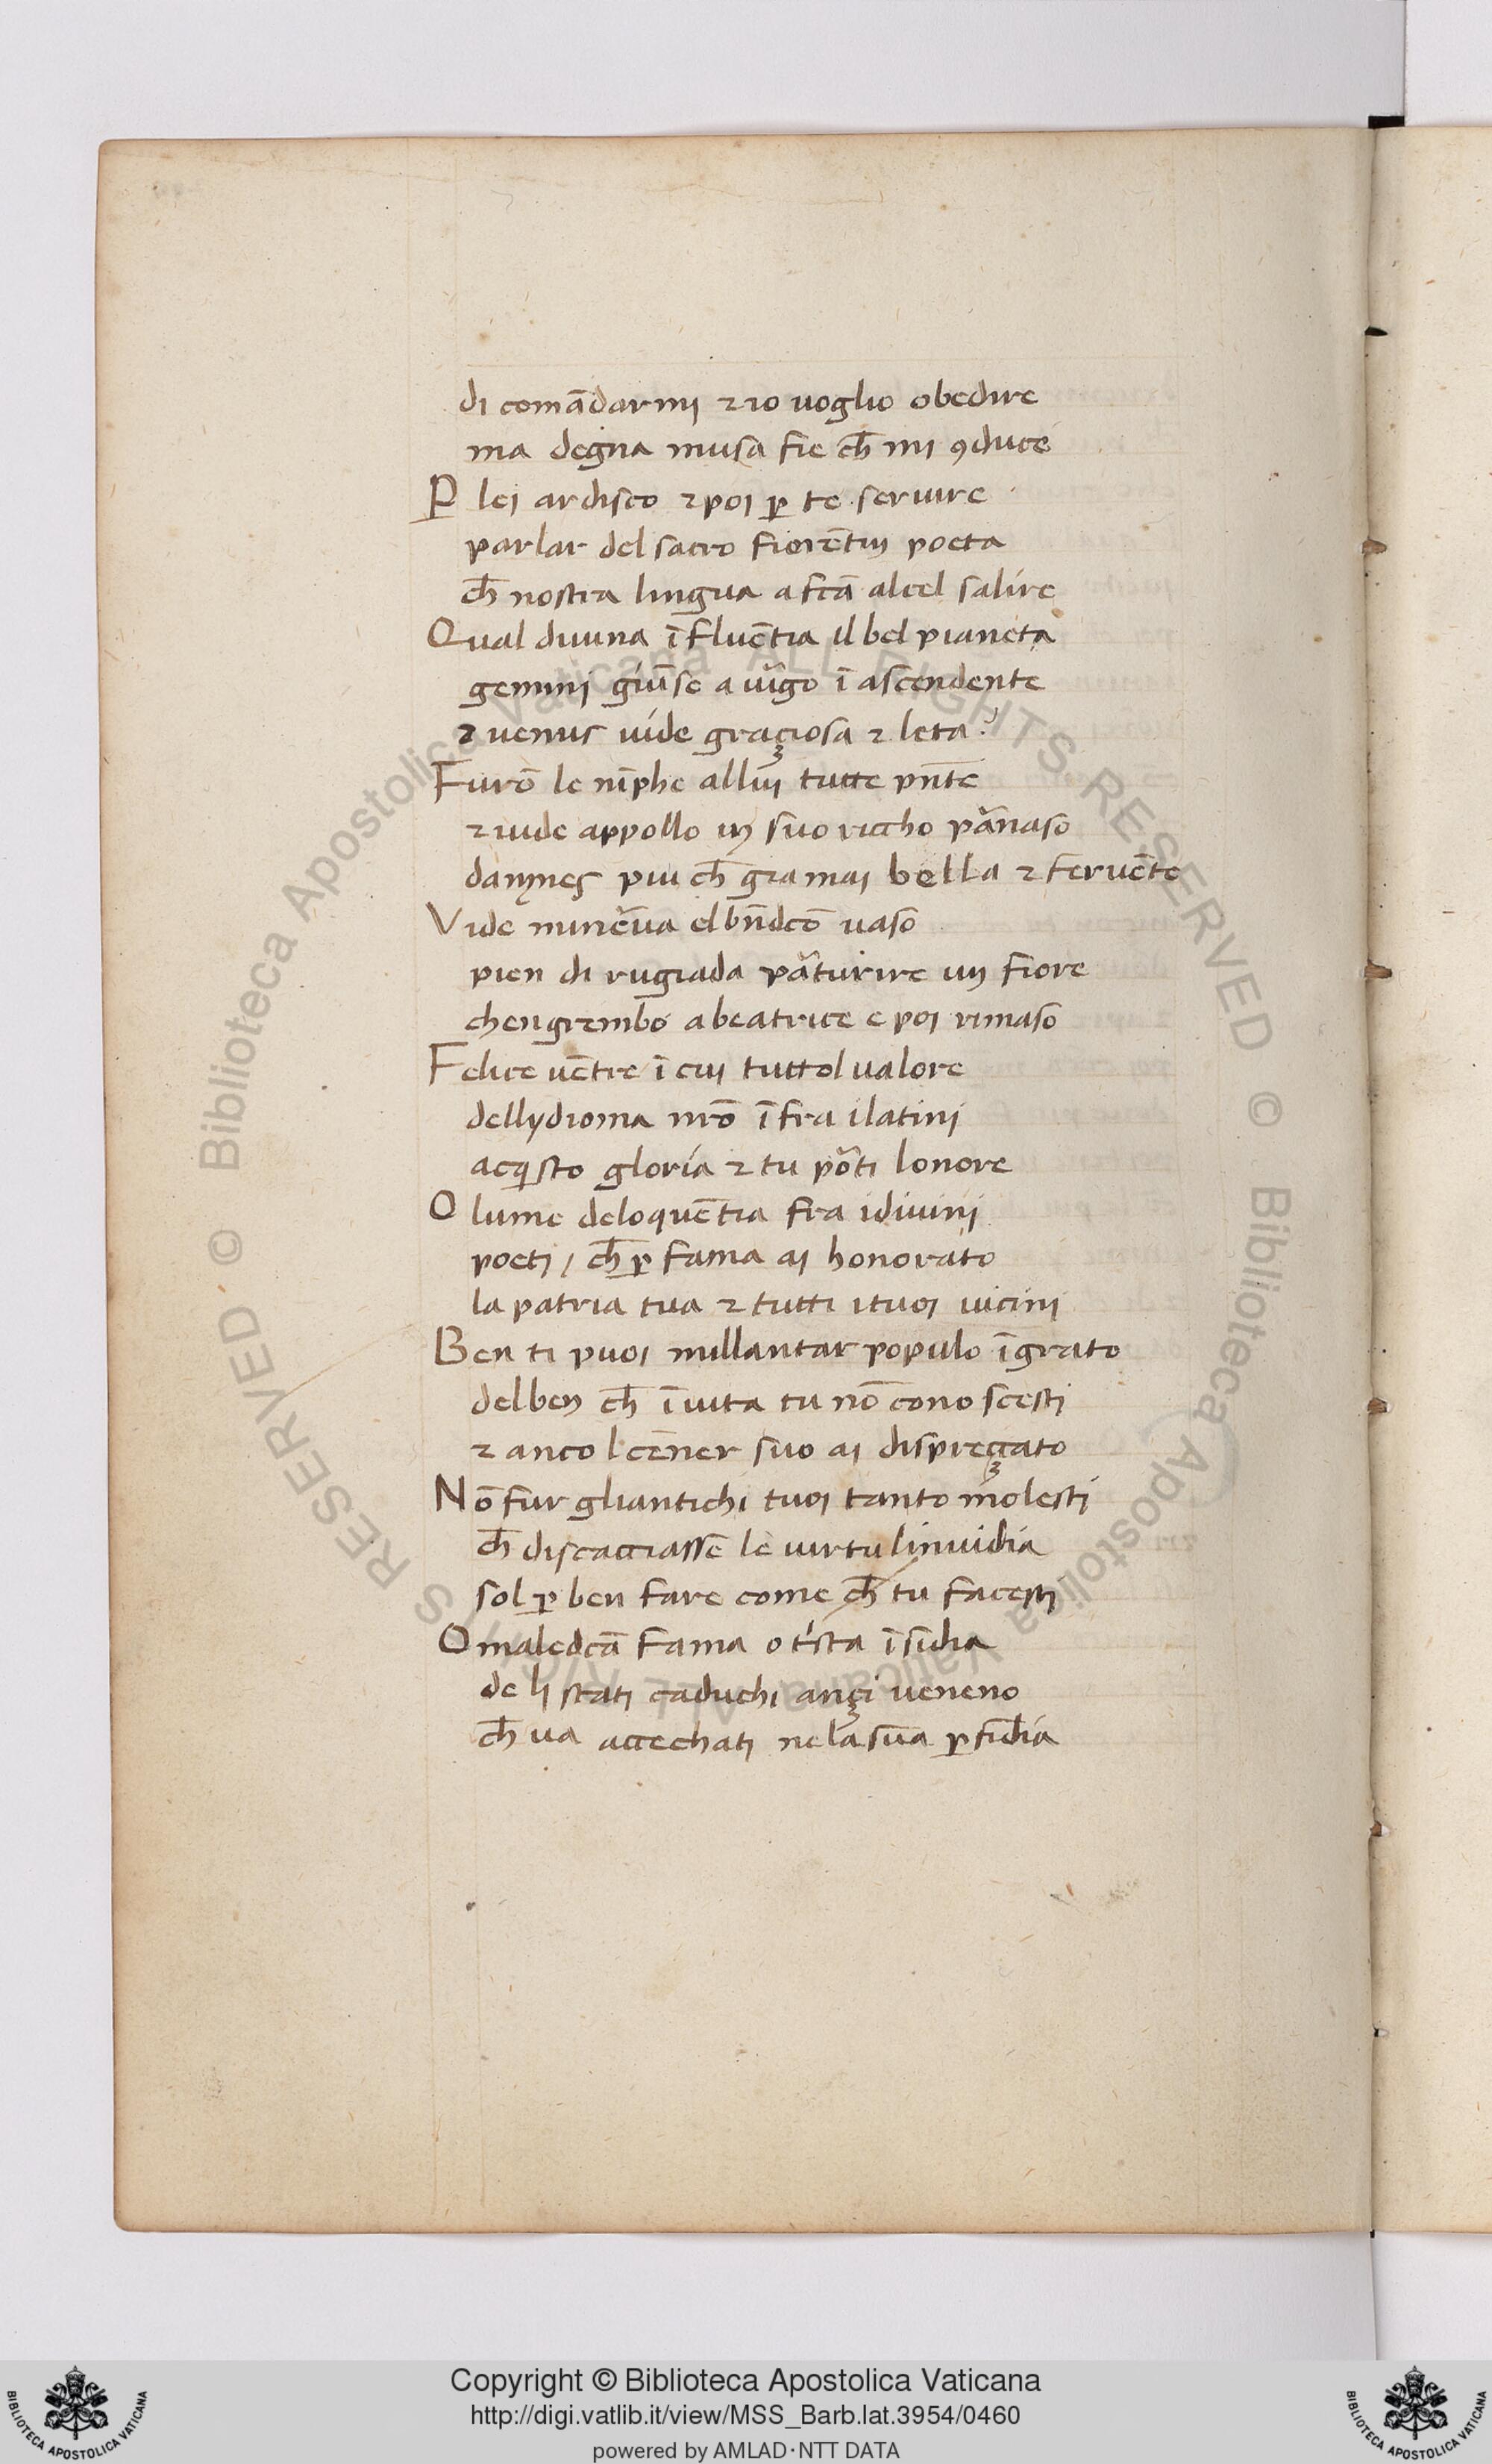 di comādarmi ⁊ io uoglio obedire
ma degna musa fie ch̄ mi ꝯduce
P̱ lei ardisco ⁊ poi ꝑ te seruire
parlar del sacro fiorētin poeta
ch̄ nostra lingua a fcā alcel salire
Qual diuina īfluētia il bel pianeta
gemini giūse a uīgo ī ascendente
⁊ uenus uide graçiosa ⁊ leta?
Furō le nīphe allui tutte pn̄te
⁊ uide appollo in suo riccho pānaso
damnes piu ch̄ gia mai bella ⁊ feruēte
Vide minēua el bn̄dcō uaso
pien di rugiada pāturire un fiore
chengrembo a beatrice e poi rimaso
Felice uētre ī cui tuttol ualore
dellydioma nrō īfra ilatini
acqisto gloria ⁊ tu pōti lonore
O lume deloquētia fra idiuini
poeti / ch̄ ꝑ fama ai honorato
la patria tua ⁊ tutti ituoi uicini
Ben ti puoi millantar populo īgrato
delben ch̄ īuita tu nō cono scesti
⁊ anco l cener suo ai dispreççato
Nō fur gliantichi tuoi tanto molesti
ch̄ discacciassē le uirtu linuidia
sol ꝑ ben fare come ch̄ tu facesti
O maledcā fama o tista īsidia
de li stati caduchi ançi ueneno
ch̄ ua accechati nela sua ꝑfidia
Copyright © Biblioteca Apostolica Vaticana
http://digi.vatlib.it/view/MSS_Barb.lat.3954/0460
powered by AMLAD·NTT DATA